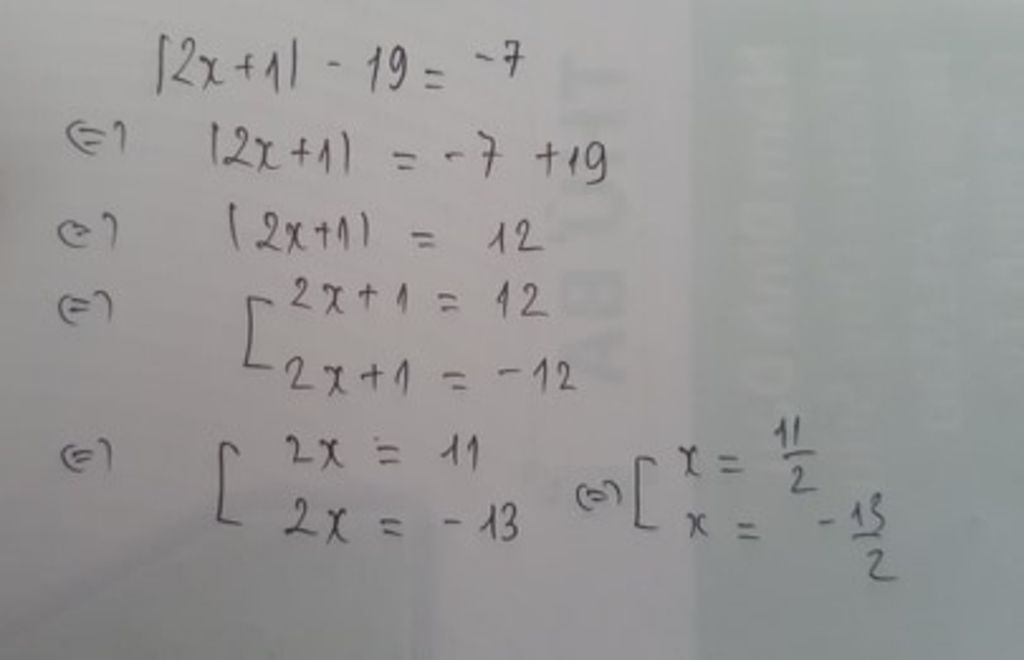 |2x+1| - 19 = -7
⇔ |2x+1| = -7 +19
⇔ |2x+1| = 12
⇔ [ 2x+1 = 12
2x+1 = -12
⇔ [ 2x = 11 ⇔ [ x = 11/2
2x = -13 x = -13/2